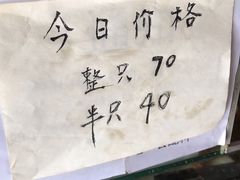 今日价格
整只 70
半只 40